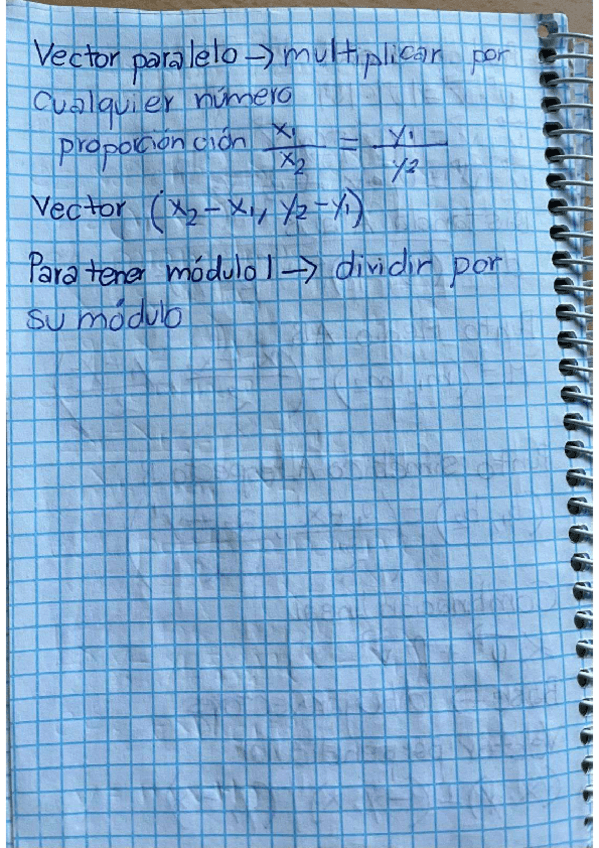 Vector paralelo → multiplicar por
cualquier número
proporción ción x₁/x₂ = y₁/y₂
Vector (x₂-x₁, y₂-y₁)
Para tener módulo 1 → dividir por
su módulo